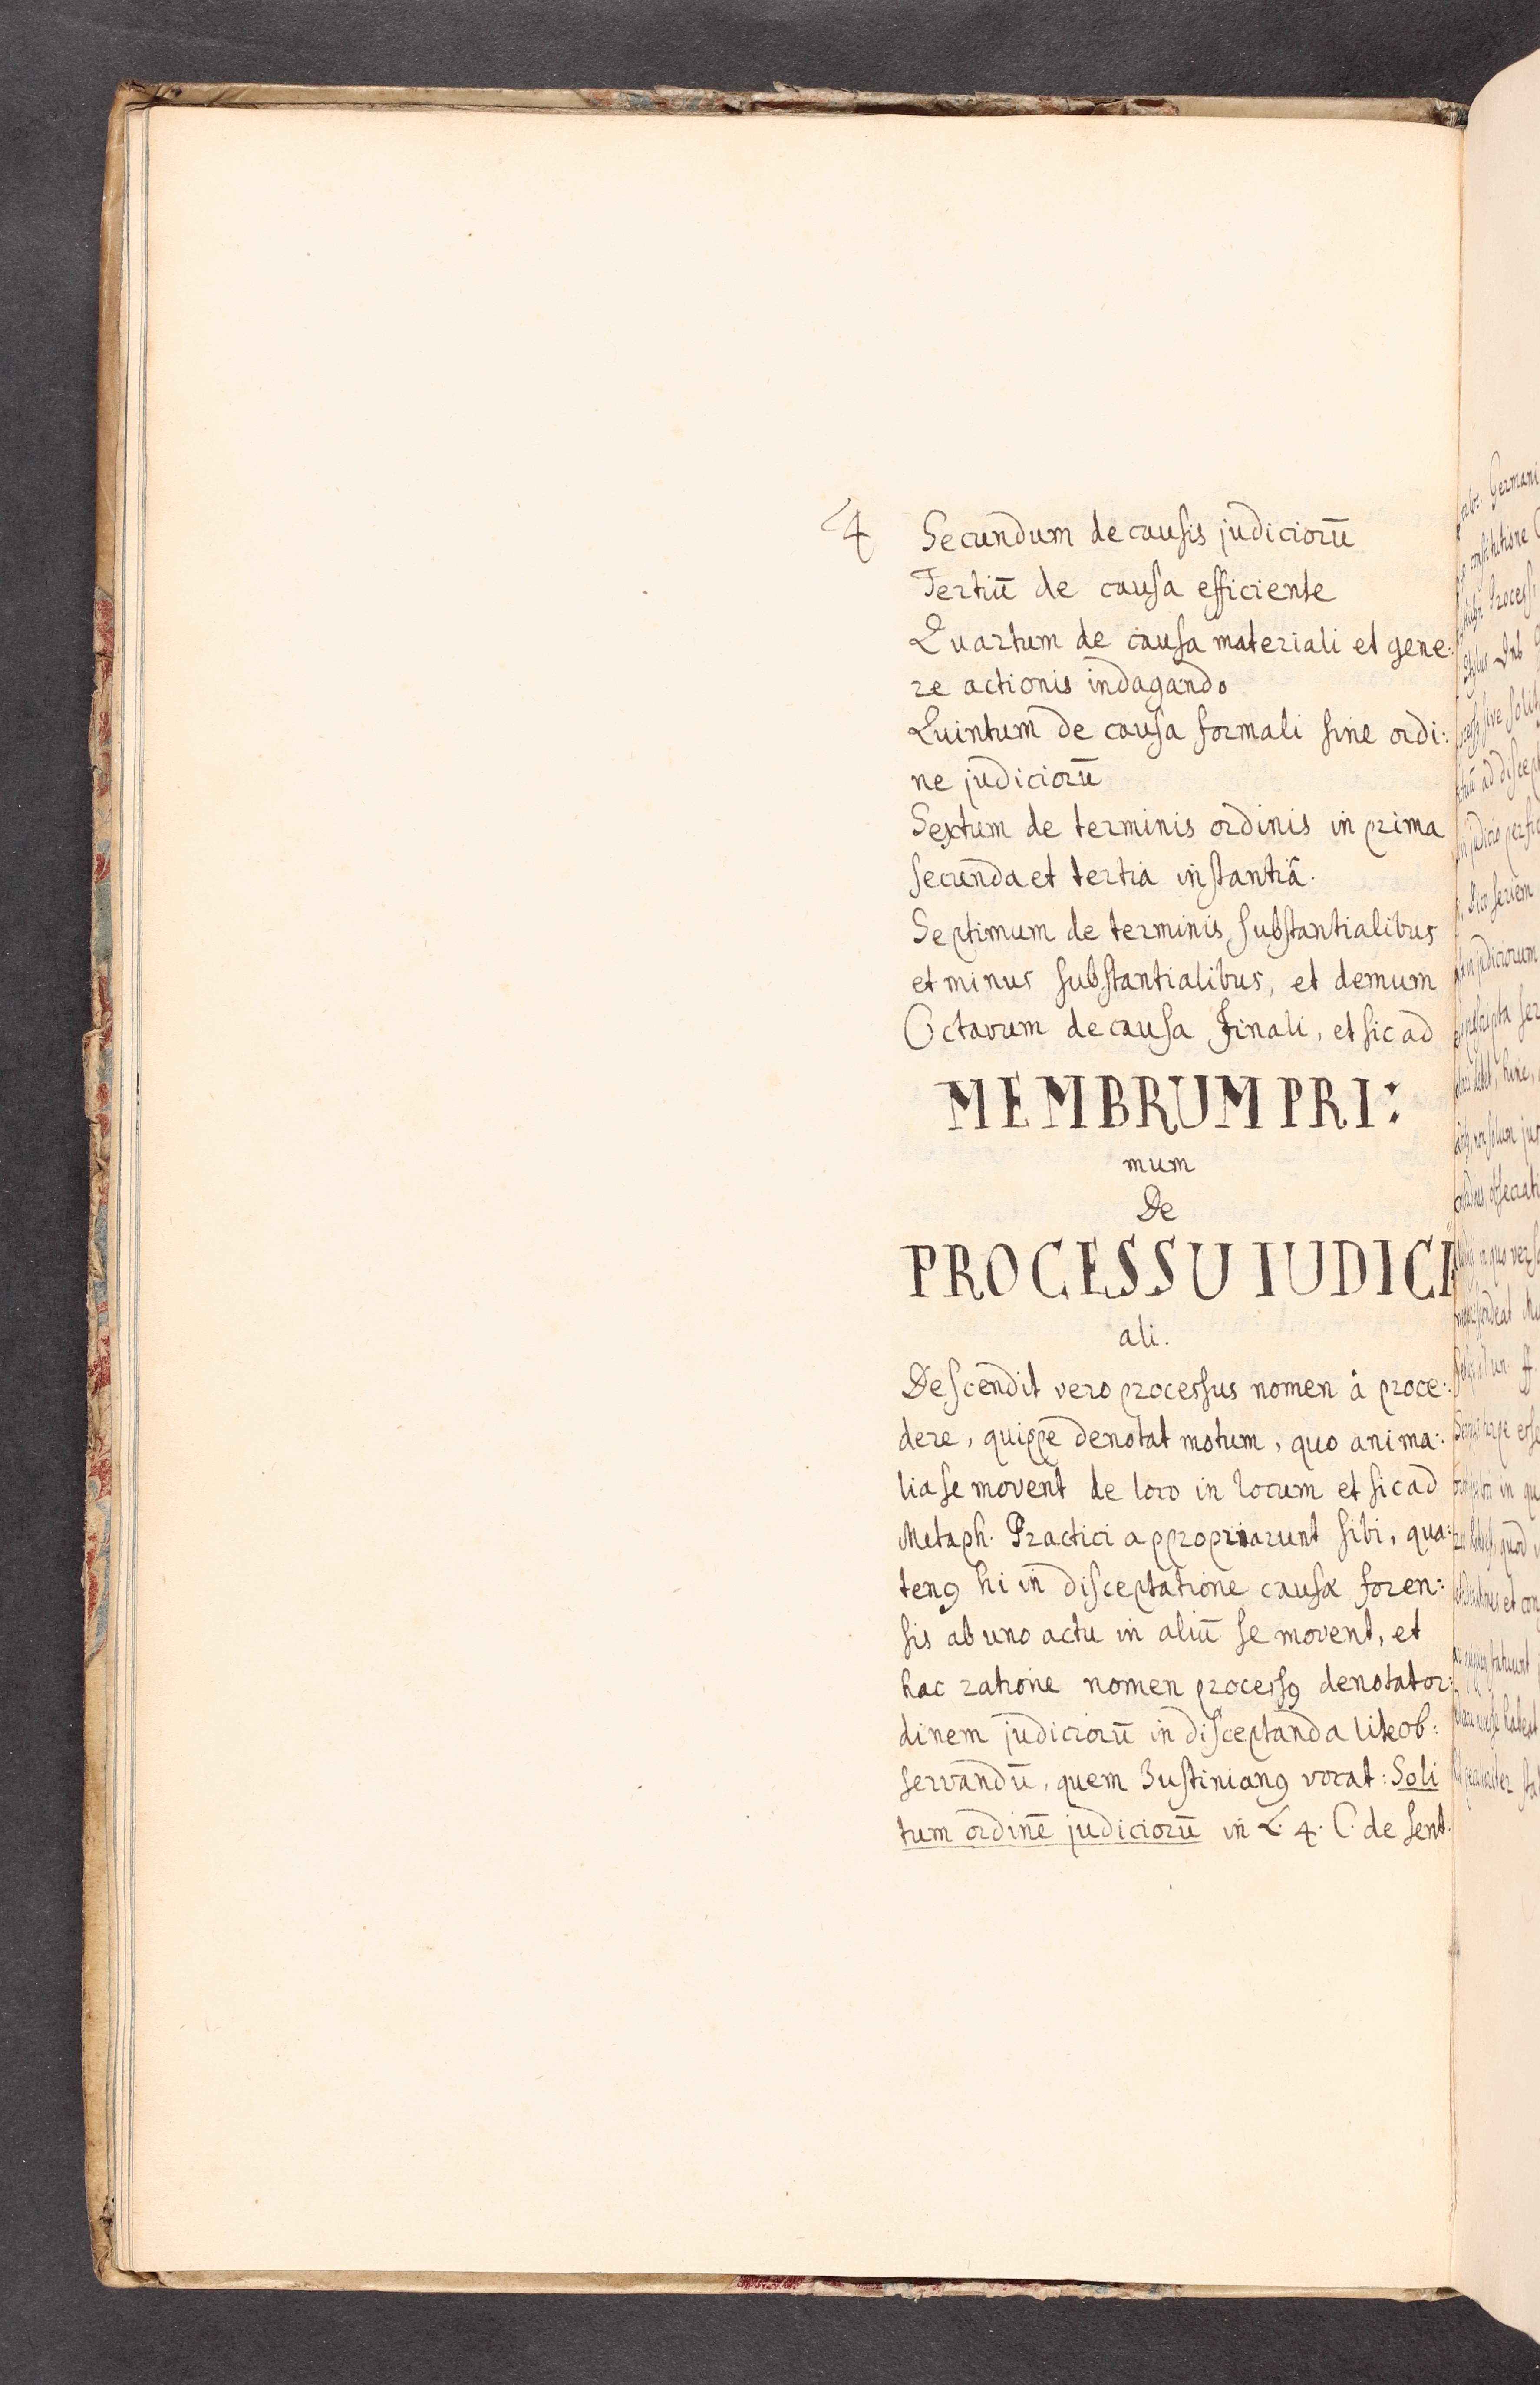 4
Secundum de causis judiciorū
Tertiū de causa efficiente
Quartum de causa materiali et gene:
re actionis indagando
Quintum de causa formali sine ordi:
ne judiciorū
Sextum de terminis ordinis in prima
secunda et tertia instantiâ.
Septimum de terminis substantialibus
et minus substantialibus, et demum
Octavum de causa Finali, et sic ad
MEMBRUM PRI:
mum
De
PROCESSU IUDICI
ali.
Descendit vero processus nomen à proce:
dere, quippe denotat motum, quo anima:
lia se movent de loco in locum et sic ad
Metaph. Practici appropriarunt sibi, qua:
tenꝰ hi in disceptatione causæ foren:
sis ab uno actu in aliū se movent, et
hac ratione nomen processꝰ denotat or:
dinem judiciorū in disceptanda lite ob:
servandū, quem Justinianꝰ vocat: Soli
tum ordinē judiciorū in L. 4. C. de sent.
Germani
constitutione
Process
sive
judicio
seriem
judiciorum
non solum
in quo
ff.
in
quod
et